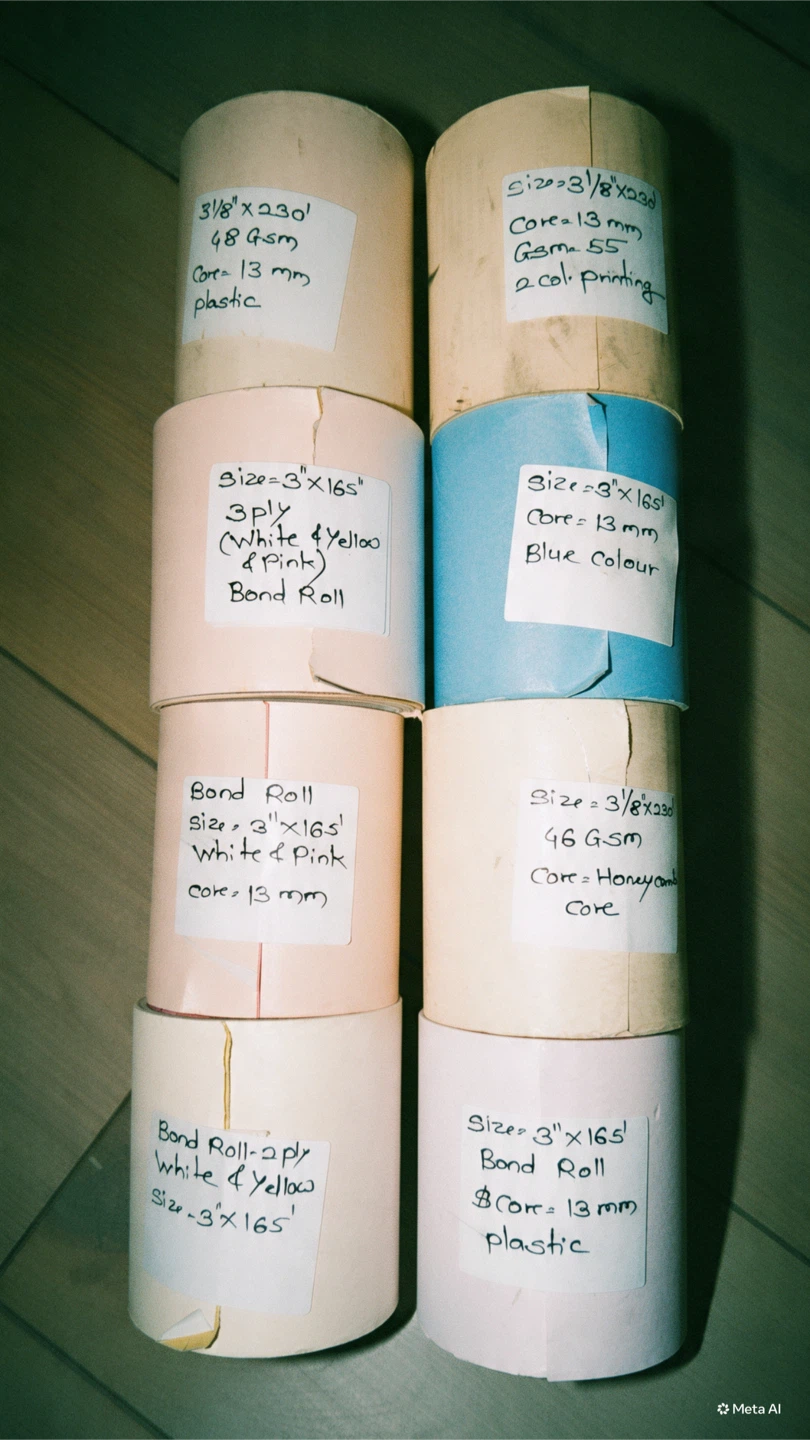 3 1/8" X 230'
48 Gsm
Core= 13 mm
plastic
Size=3 1/8" X 230
Core= 13 mm
Gsm= 55
2 col. printing
Size=3" X 165"
3 ply
(White & Yellow
& Pink)
Bond Roll
Size=3" X 165'
Core= 13 mm
Blue Colour
Bond Roll
Size= 3" X 165'
White & Pink
Core= 13 mm
Size = 3 1/8" X 230
46 GSM
Core= Honeycomb
Core
Bond Roll- 2 ply
White & Yellow
Size -3" X 165'
Size= 3" X 165'
Bond Roll
$ Core= 13 mm
plastic
Meta AI